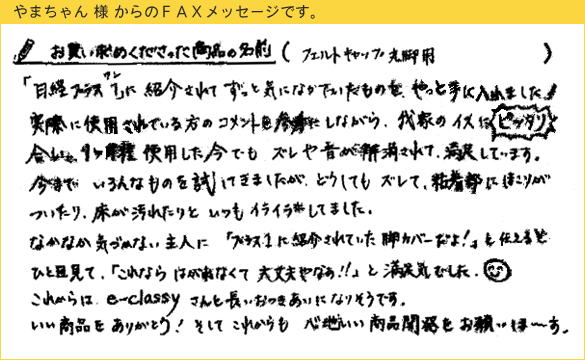 やまちゃん 様 からのＦＡＸメッセージです。
お買い求めくださった商品の名前 ( フェルトキャップ 丸脚用 )
「日経プラスワン 1」に 紹介されて ずっと気になっていたものを、やっと手に入れました!
実際に使用されている方のコメントを参考にしながら、我家のイスに ピッタリ
合い、1ヶ月程 使用した今でも ズレや音が解消されて、満足しています。
今まで いろんなものを試してきましたが、どうしても ズレて、粘着部にほこりが
ついたり、床が汚れたりと いつも イライラしてました。
なかなか気づかない主人に 「プラス1に紹介されていた脚カバーだよ!」と伝えると
ひと目見て、「これなら はがれなくて 大丈夫やなあ!!」と 満足気でした。
これからは e-classy さんと長いおつきあいになりそうです。
いい商品をありがとう! そして これからも 心地いい 商品開発を お願いしまーす。